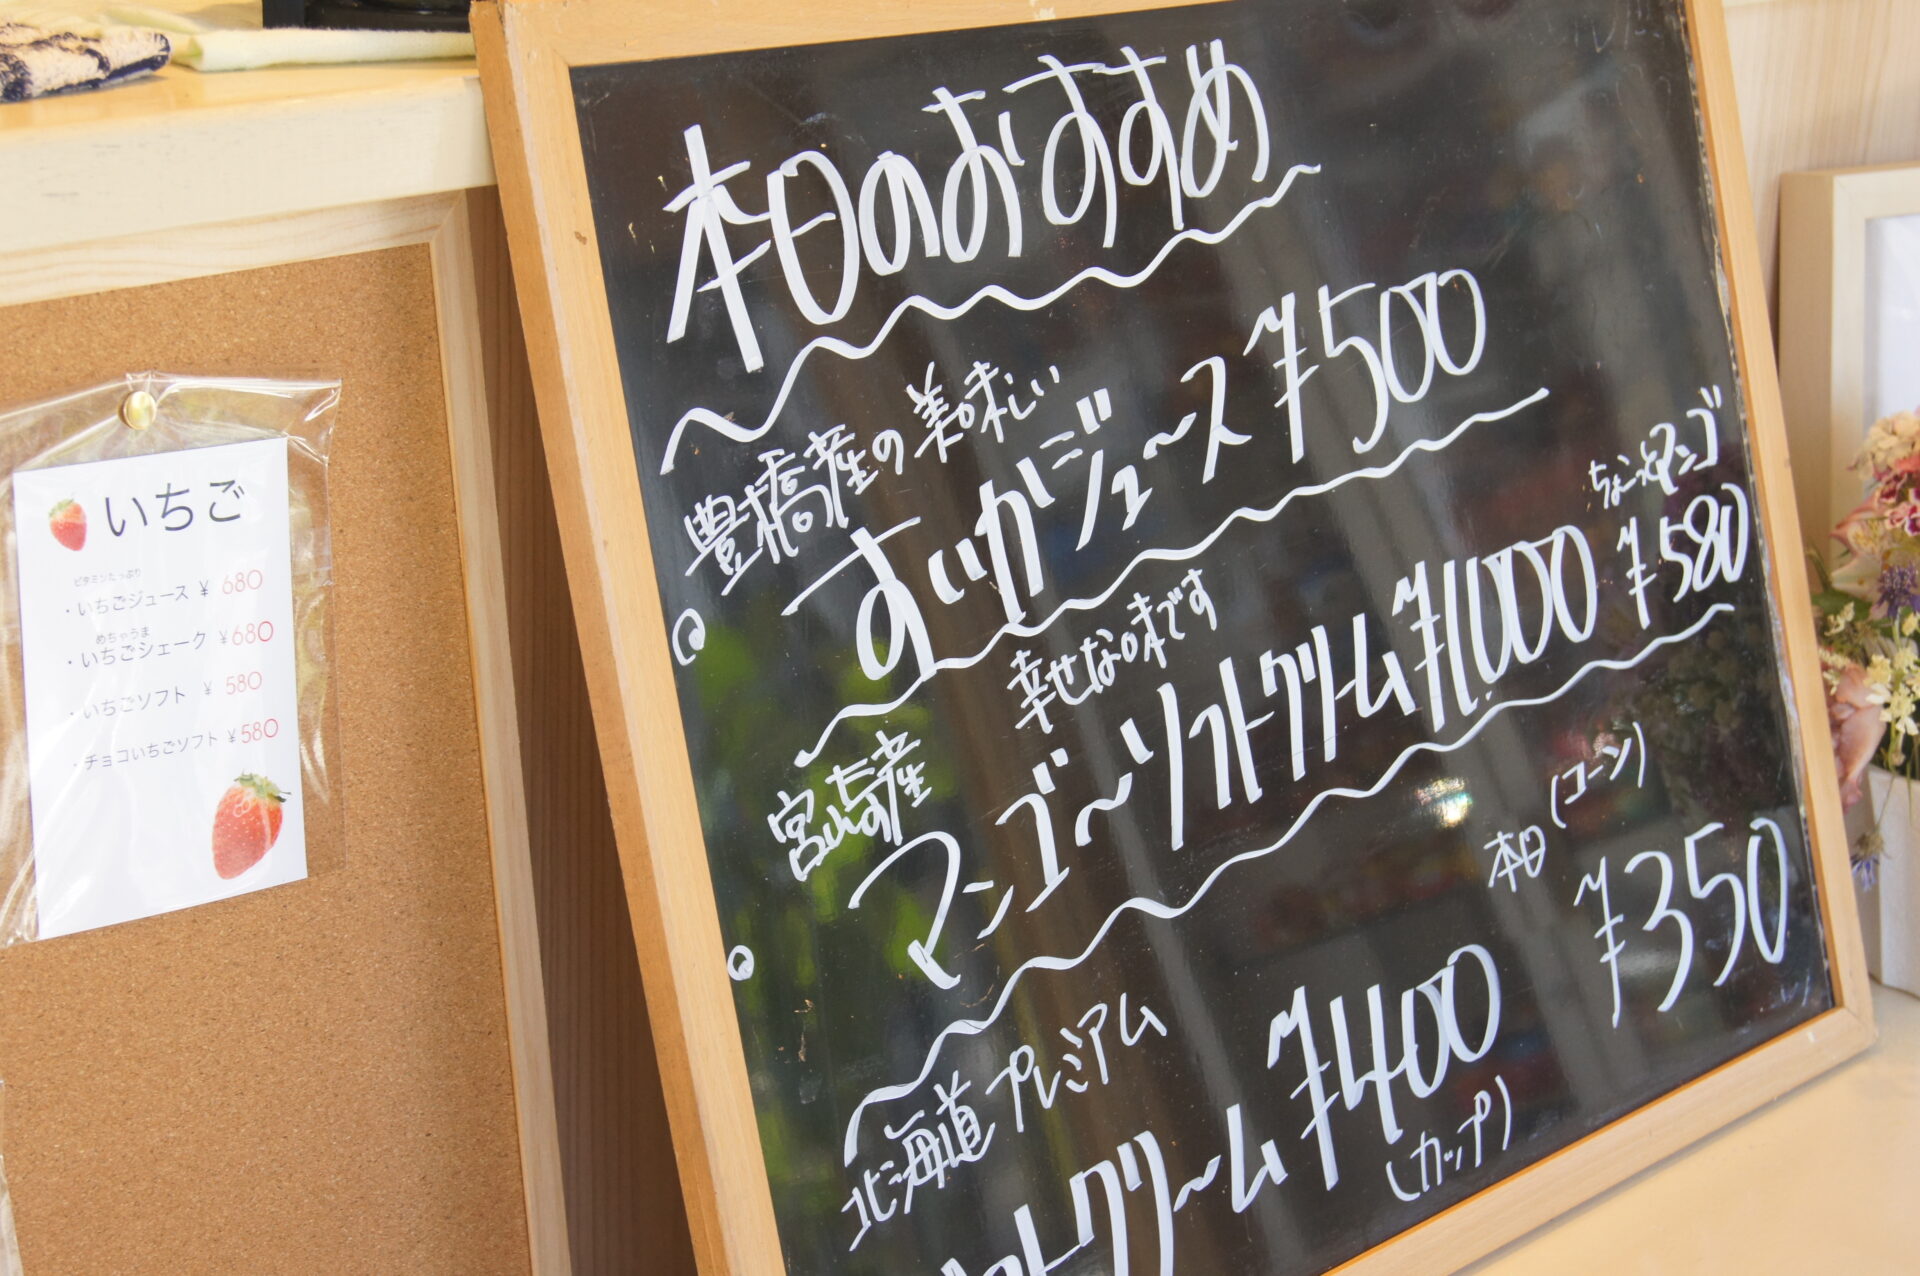 いちご
ビタミンたっぷり
・いちごジュース ¥ 680
めちゃうま
・いちごシェーク ¥680
・いちごソフト ¥ 580
・チョコいちごソフト ¥580
本日のおすすめ
豊橋産の美味しい
すいかジュース ¥500
幸せな味です
ちょこっとマンゴ
宮崎産
マンゴーソフトクリーム ¥1000 ¥580
北海道プレミアム
本日 (コーン)
フトクリーム ¥400 ¥350
(カップ)